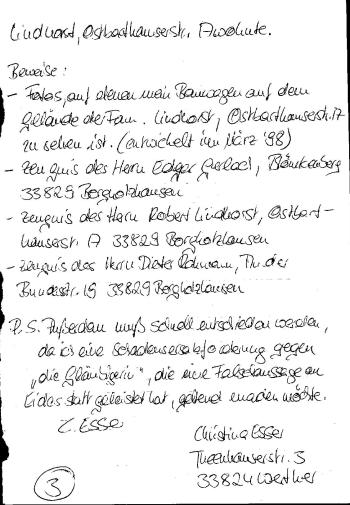 Lindhorst, Ostbarthauserstr. A wohnte.
Beweise:
- Fotos, auf denen mein Bauwagen auf dem
Gelände der Fam. Lindhorst, Ostbarthauserstr. 17
zu sehen ist. (entwickelt im März '98)
- Zeugnis des Herrn Edgar Gerlach,
33829 Borgholzhausen
- Zeugnis des Herrn Robert Lindhorst, Ostbart-
hauserstr. A 33829 Borgholzhausen
- Zeugnis des Herrn Dieter An der
Bundesstr. 19 33829 Borgholzhausen
P.S. Außerdem muß schnell entschieden werden,
da ich eine Schadensersatzforderung gegen
„die Gläubigerin“, die eine Falschaussage an
Eides statt geleistet hat, geltend machen möchte.
C. Esser
Christina Esser
Theenhauserstr. 3
33824 Werther
3